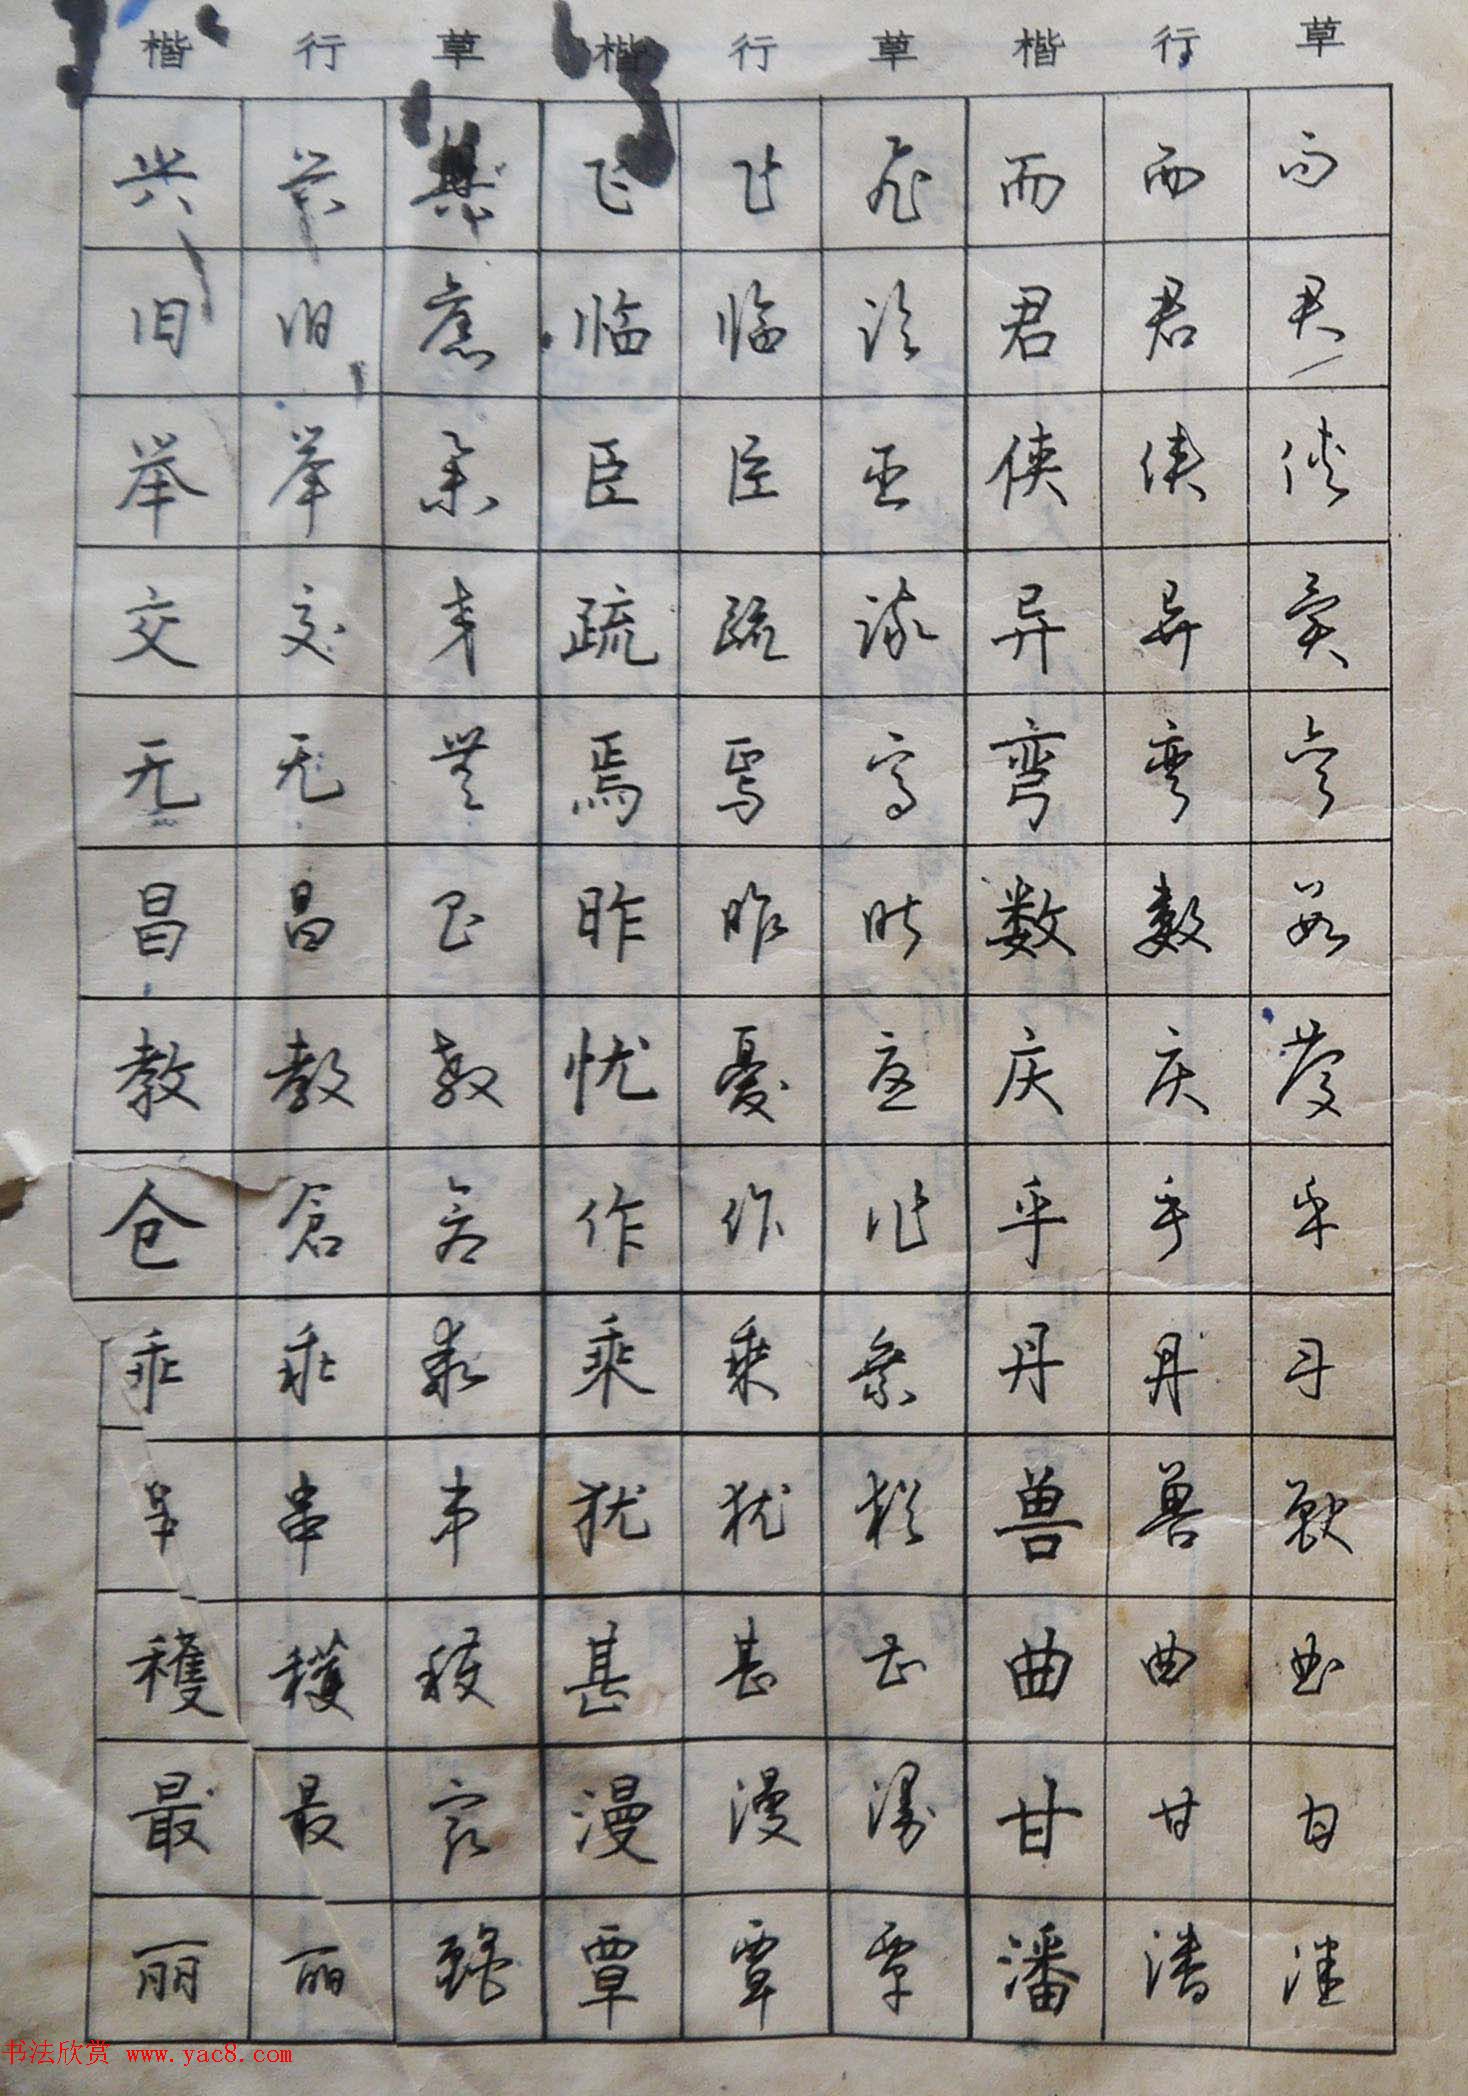 楷 行 草 楷 行 草 楷 行 草
兴 兴 興 飞 飞 飛 而 而 而
旧 旧 舊 临 临 临 君 君 君
举 举 举 臣 臣 臣 侠 侠 侠
交 交 交 疏 疏 疏 异 异 異
无 无 無 焉 焉 焉 弯 弯 弯
昌 昌 昌 昨 昨 昨 数 数 数
教 教 教 忧 憂 憂 庆 庆 慶
仓 倉 倉 作 作 作 乎 乎 乎
乖 乖 乖 乘 乘 乘 丹 丹 丹
串 串 串 犹 犹 犹 兽 兽 獸
穫 穫 穫 甚 甚 甚 曲 曲 曲
最 最 最 漫 漫 漫 甘 甘 甘
丽 丽 麗 覃 覃 覃 潘 潘 潘
书法欣赏 www.yac8.com